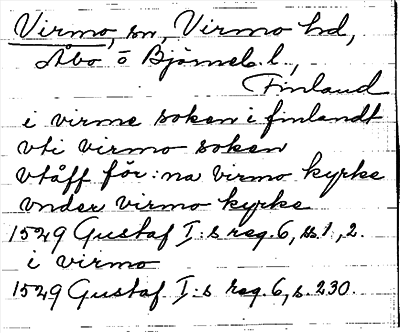 Virmo, sn, Virmo hd,
Åbo o Björneb. l.,
Finland
i virme soken i finlandt
vti virmo soken
vtåff för:na virmo kyrke
vnder virmo kyrke
1529 Gustaf I:s reg. 6, ss. 1, 2.
i virmo
1529 Gustaf I:s reg. 6, s. 230.